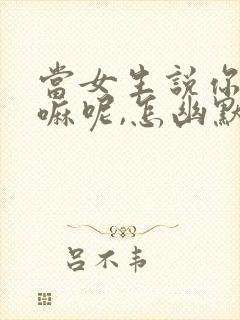 當女生說你
嘛呢,怎幽默
吕不韦